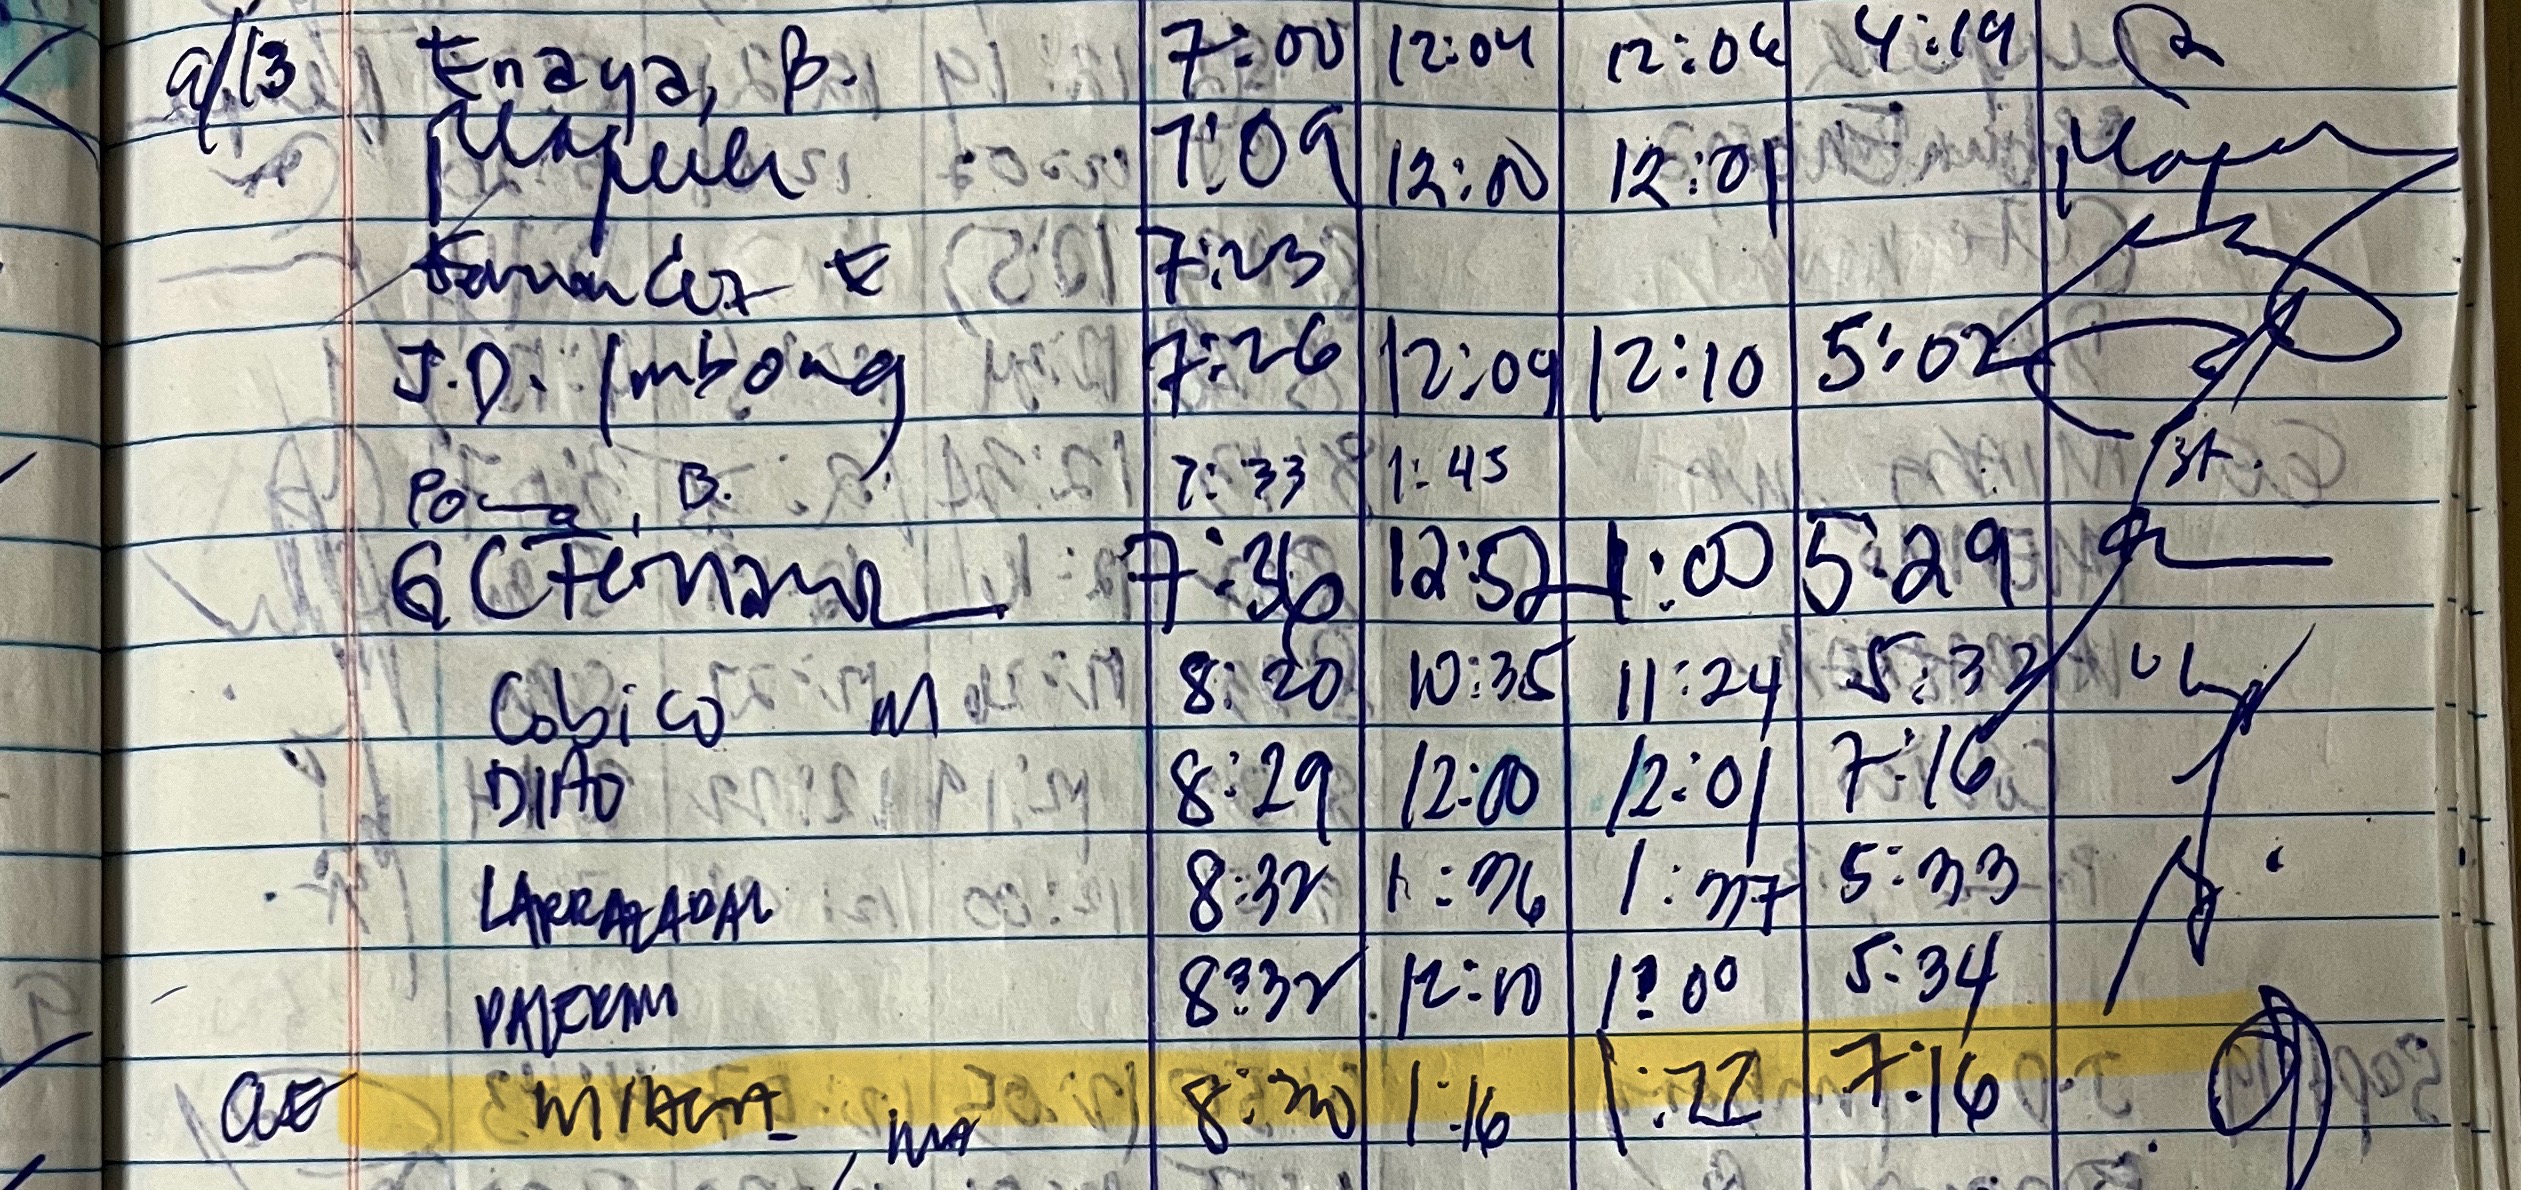 9/13 Enaya, B. 7:00 12:04 12:06 4:19
7:09 12:00 12:01
Fernandez E 7:23
J.D. Imbong 7:26 12:09 12:10 5:02
B. 7:33 1:45
GC 7:36 12:52 1:00 5:29
Cobico M 8:20 10:35 11:24 5:32
8:29 12:00 12:01 7:16
LARRAZABAL 8:32 1:36 1:37 5:33
8:32 12:10 1:00 5:34
8:30 1:16 1:22 7:16